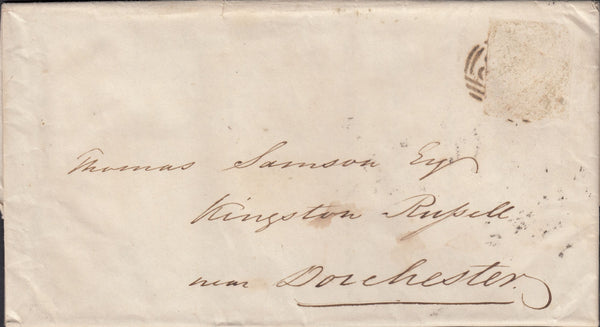 Thomas Samson Esq
Kingston Russell
near Dorchester